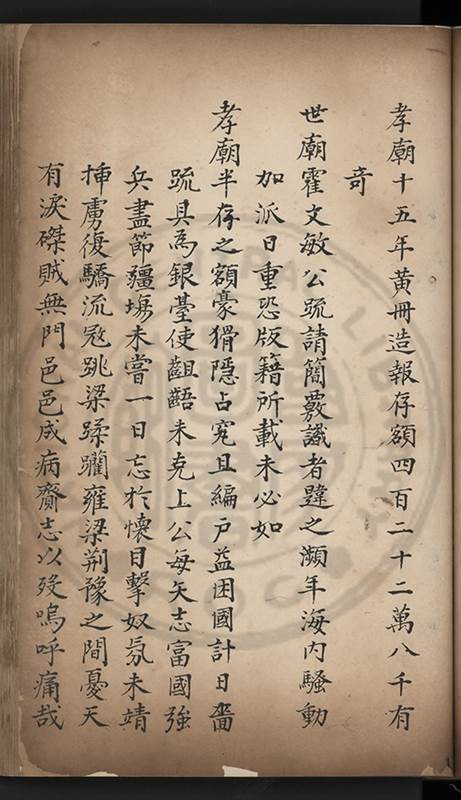 孝廟十五年黃冊造報存額四百二十二萬八千有
奇
世廟霍文敏公疏請簡覈識者韙之瀕年海內騷動
加派日重恐版籍所載未必如
孝廟半存之額豪猾隱占寃且編戶益困國計日嗇
䟽具為銀臺使齟齬未克上公每矢志富國強
兵盡節疆塲未嘗一日忘於懷目擊奴氛未靖
揷虜復驕流冦跳梁蹂躪雍梁荆豫之間憂天
有淚磔賊無門邑邑成病齎志以歿嗚呼痛哉